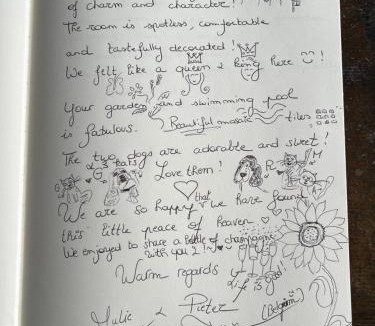 of charm and character!
The room is spotless, comfortable
and tastefully decorated!
We felt like a queen & king here !
Your garden and swimming pool
is fabulous. Beautiful mosaic tiles
The two dogs are adorable and sweet!
& 3 kats! Love them!
We are so happy that we have found
this little peace of heaven
We enjoyed to share a bottle of champagne
with you 2!
Warm regards
Life is good!
Julie & Pieter (Belgium)